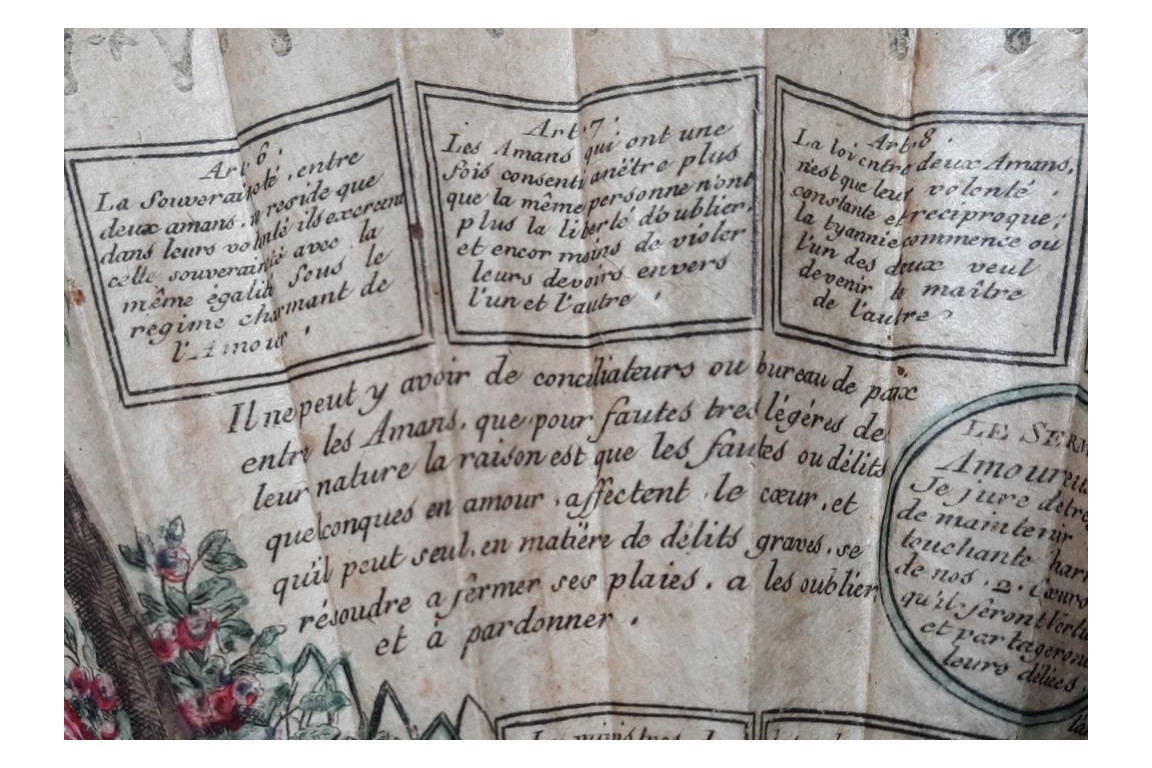 Art. 6.
La Souveraineté, entre
deux amans, ne reside que
dans leurs volonté ils exercent
cette souveraineté avec la
même égalité sous le
regime charmant de
l'Amour.
Art. 7.
Les Amans qui ont une
fois consenti anêtre plus
que la même personne n'ont
plus la liberté d'oublier,
et encor moins de violer
leurs devoirs envers
l'un et l'autre.
Art. 8.
La loi entre deux Amans,
n'est que leur volonté,
constante et reciproque;
la tyannie commence ou
l'un des deux veul
devenir le maître
de l'autre.
Il ne peut y avoir de conciliateurs ou bureau de paix
entre les Amans, que pour fautes tres légéres de
leur nature la raison est que les fautes ou délits
quelconques en amour, affectent, le cœur, et
qu'il peut seul, en matière de délits graves, se
résoudre a fermer ses plaies, a les oublier
et à pardonner.
LE SERM
Amoureux
Je jure d'etre
de maintenir
touchante har
de nos .2. Cœurs
qu'ils feront
et partageront
leurs délices.